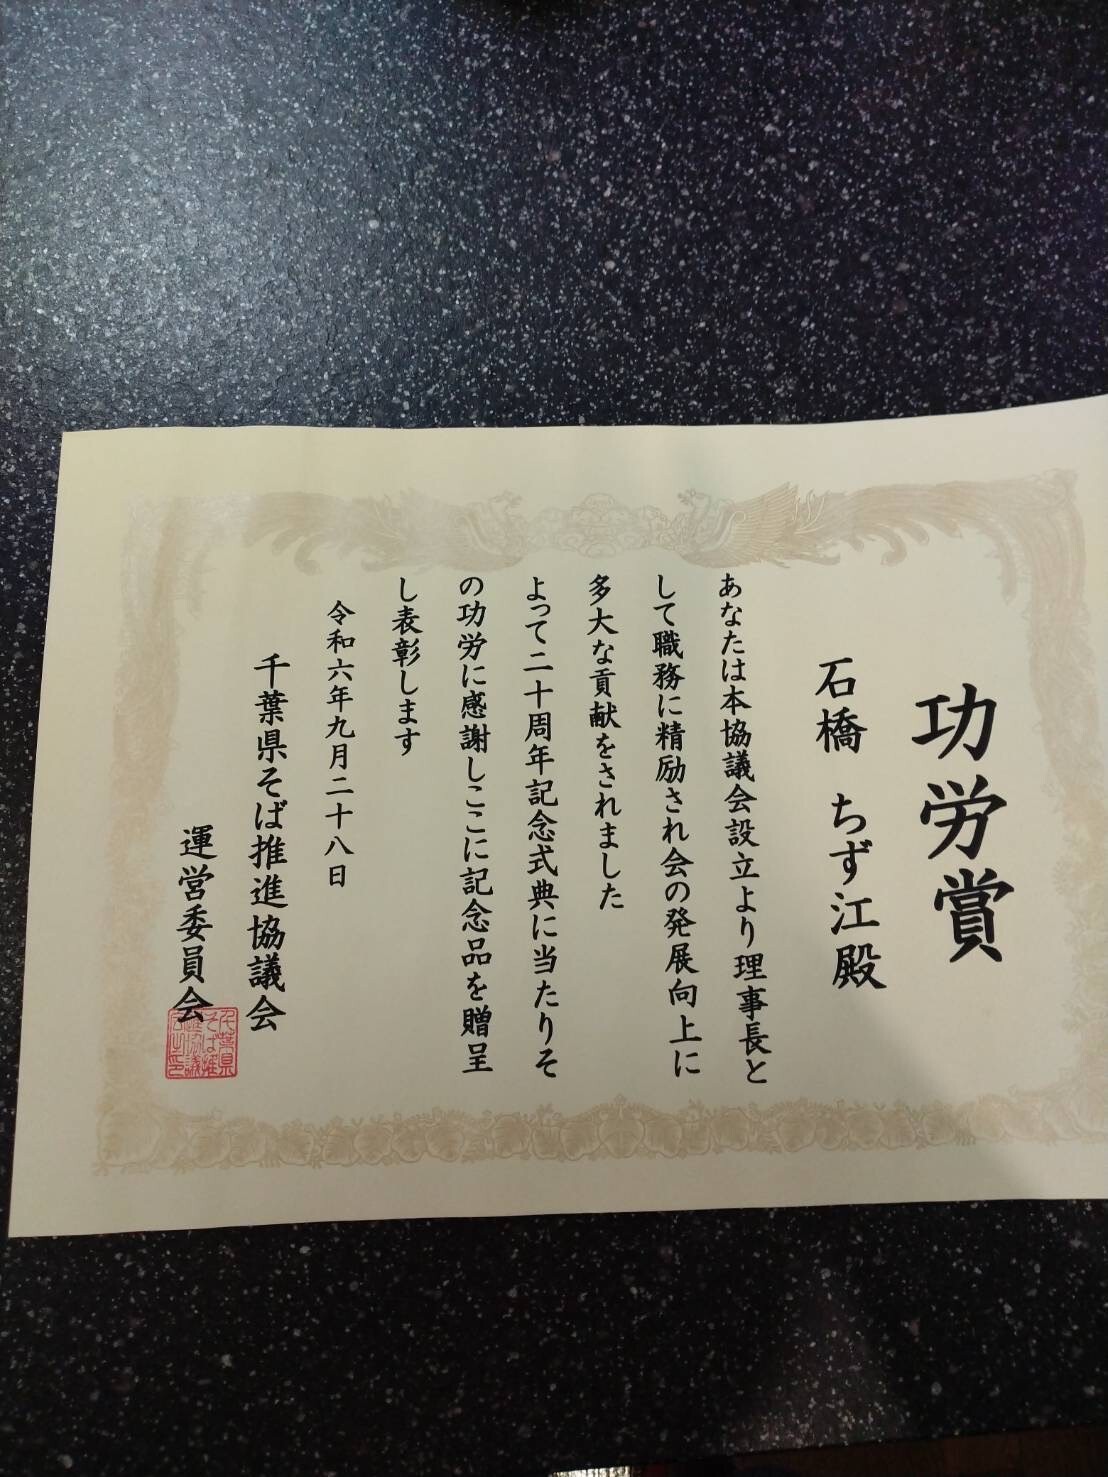 功労賞
石橋 ちず江殿
あなたは本協議会設立より理事長と
して職務に精励され会の発展向上に
多大な貢献をされました
よって二十周年記念式典に当たりそ
の功労に感謝しここに記念品を贈呈
し表彰します
令和六年九月二十八日
千葉県そば推進協議会
運営委員会
千葉県
そば推
進協議
会之印